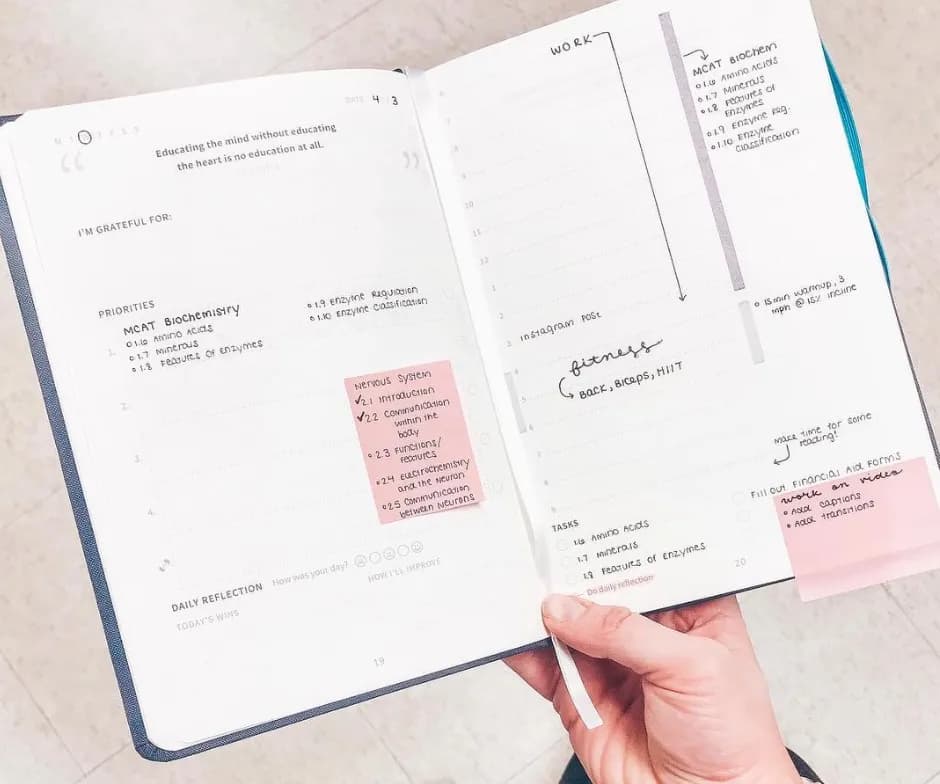 DATE 4 / 3
Educating the mind without educating
the heart is no education at all.
I'M GRATEFUL FOR:
PRIORITIES
MCAT Biochemistry
1.6 Amino Acids
1.7 Minerals
1.8 Features of Enzymes
1.9 Enzyme Regulation
1.10 Enzyme Classification
1.
2.
3.
4.
Nervous System
✓2.1 Introduction
✓2.2 Communication
within the
body
2.3 Functions/
Features
2.4 Electrochemistry
and the Neuron
2.5 Communication
between Neurons
DAILY REFLECTION How was your day?
TODAY'S WINS
HOW I'LL IMPROVE
19
WORK
MCAT Biochem
1.6 Amino Acids
1.7 Minerals
1.8 Features of
Enzymes
1.9 Enzyme Reg.
1.10 Enzyme
Classification
10
11
12
1
2
3
Instagram Post
15min warmup, 3
mph @ 15% incline
fitness
Back, Biceps, HIIT
5
6
Make time for some
reading!
TASKS
1.6 Amino Acids
1.7 Minerals
1.8 Features of Enzymes
Do daily reflection
Fill out Financial Aid Forms
work on video
Add captions
Add transitions
20